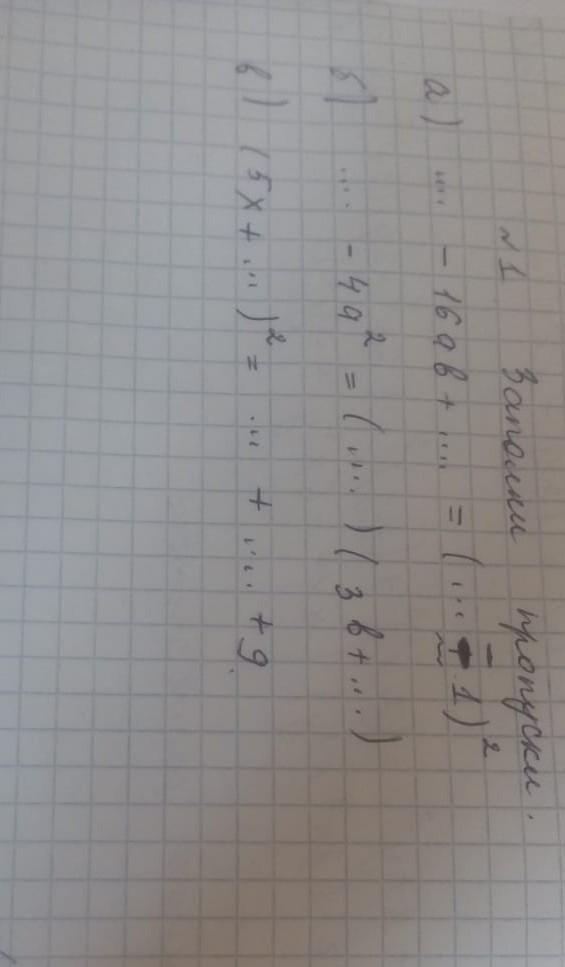 №1 Заполни пропуски.
а) .... - 16ab + .... = (... - 1)²
б) .... - 4a² = (....) (3b + ....)
в) (5x + ...)² = ... + .... + 9